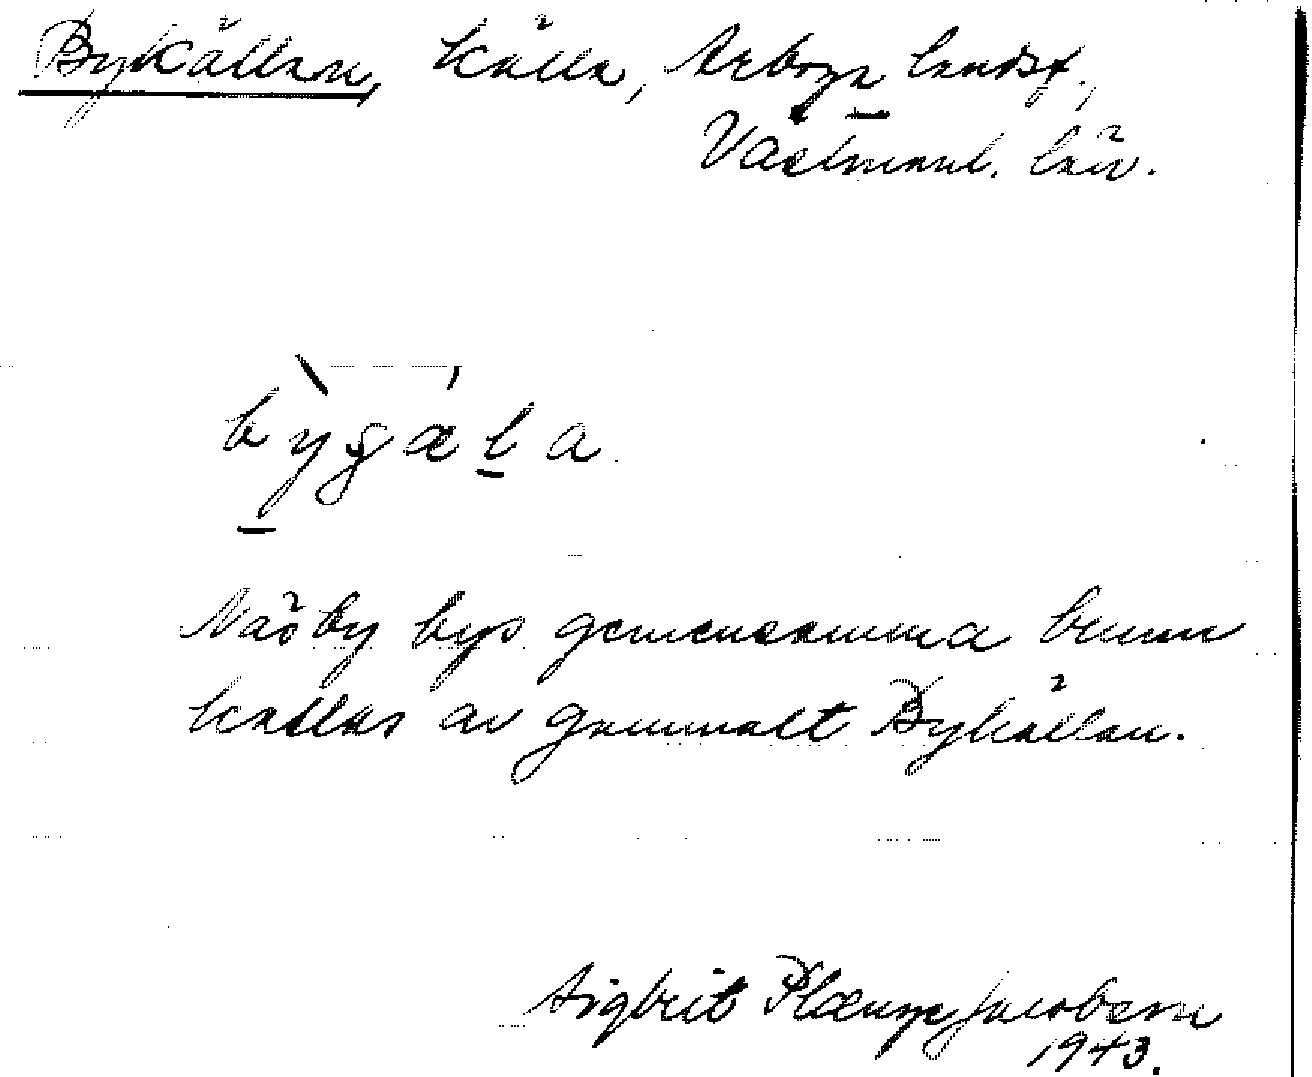 Bykällan, källa, Arboga landsf.,
Västmanl. län.
Näsby bys gemensamma brunn
kallas av gammalt Bykällan.
Sigbrit Plænge Jacobson
1943.